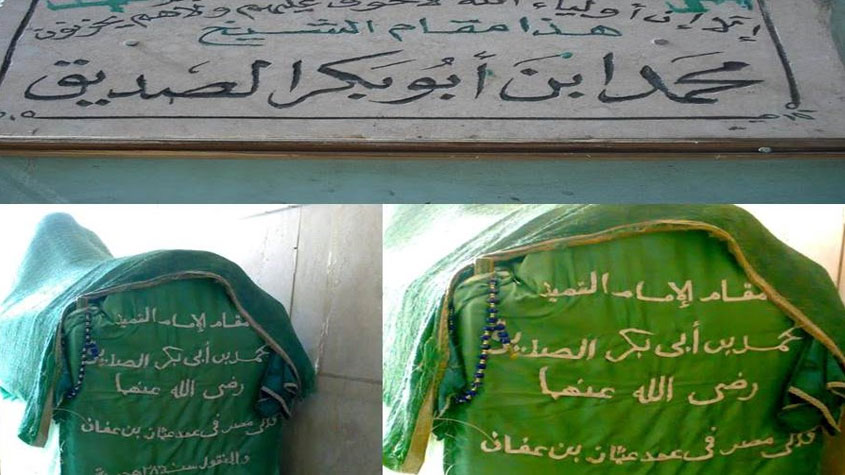 ألا إن أولياء الله لا خوف عليهم ولا هم يحزنون
هذا مقام الشيخ
محمد ابن أبو بكر الصديق
مقام الإمام الشهيد
محمد بن أبي بكر الصديق
رضى الله عنهما
والى مصر فى عهد عثمان بن عفان
مقام الإمام الشهيد
محمد بن أبى بكر الصديق
رضى الله عنهما
والى مصر فى عهد عثمان بن عفان